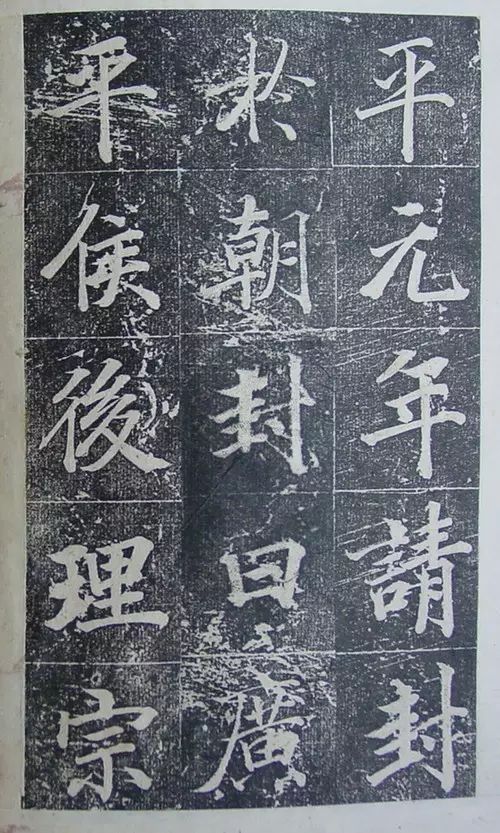 平元年請封
於朝封曰廣
平侯後理宗